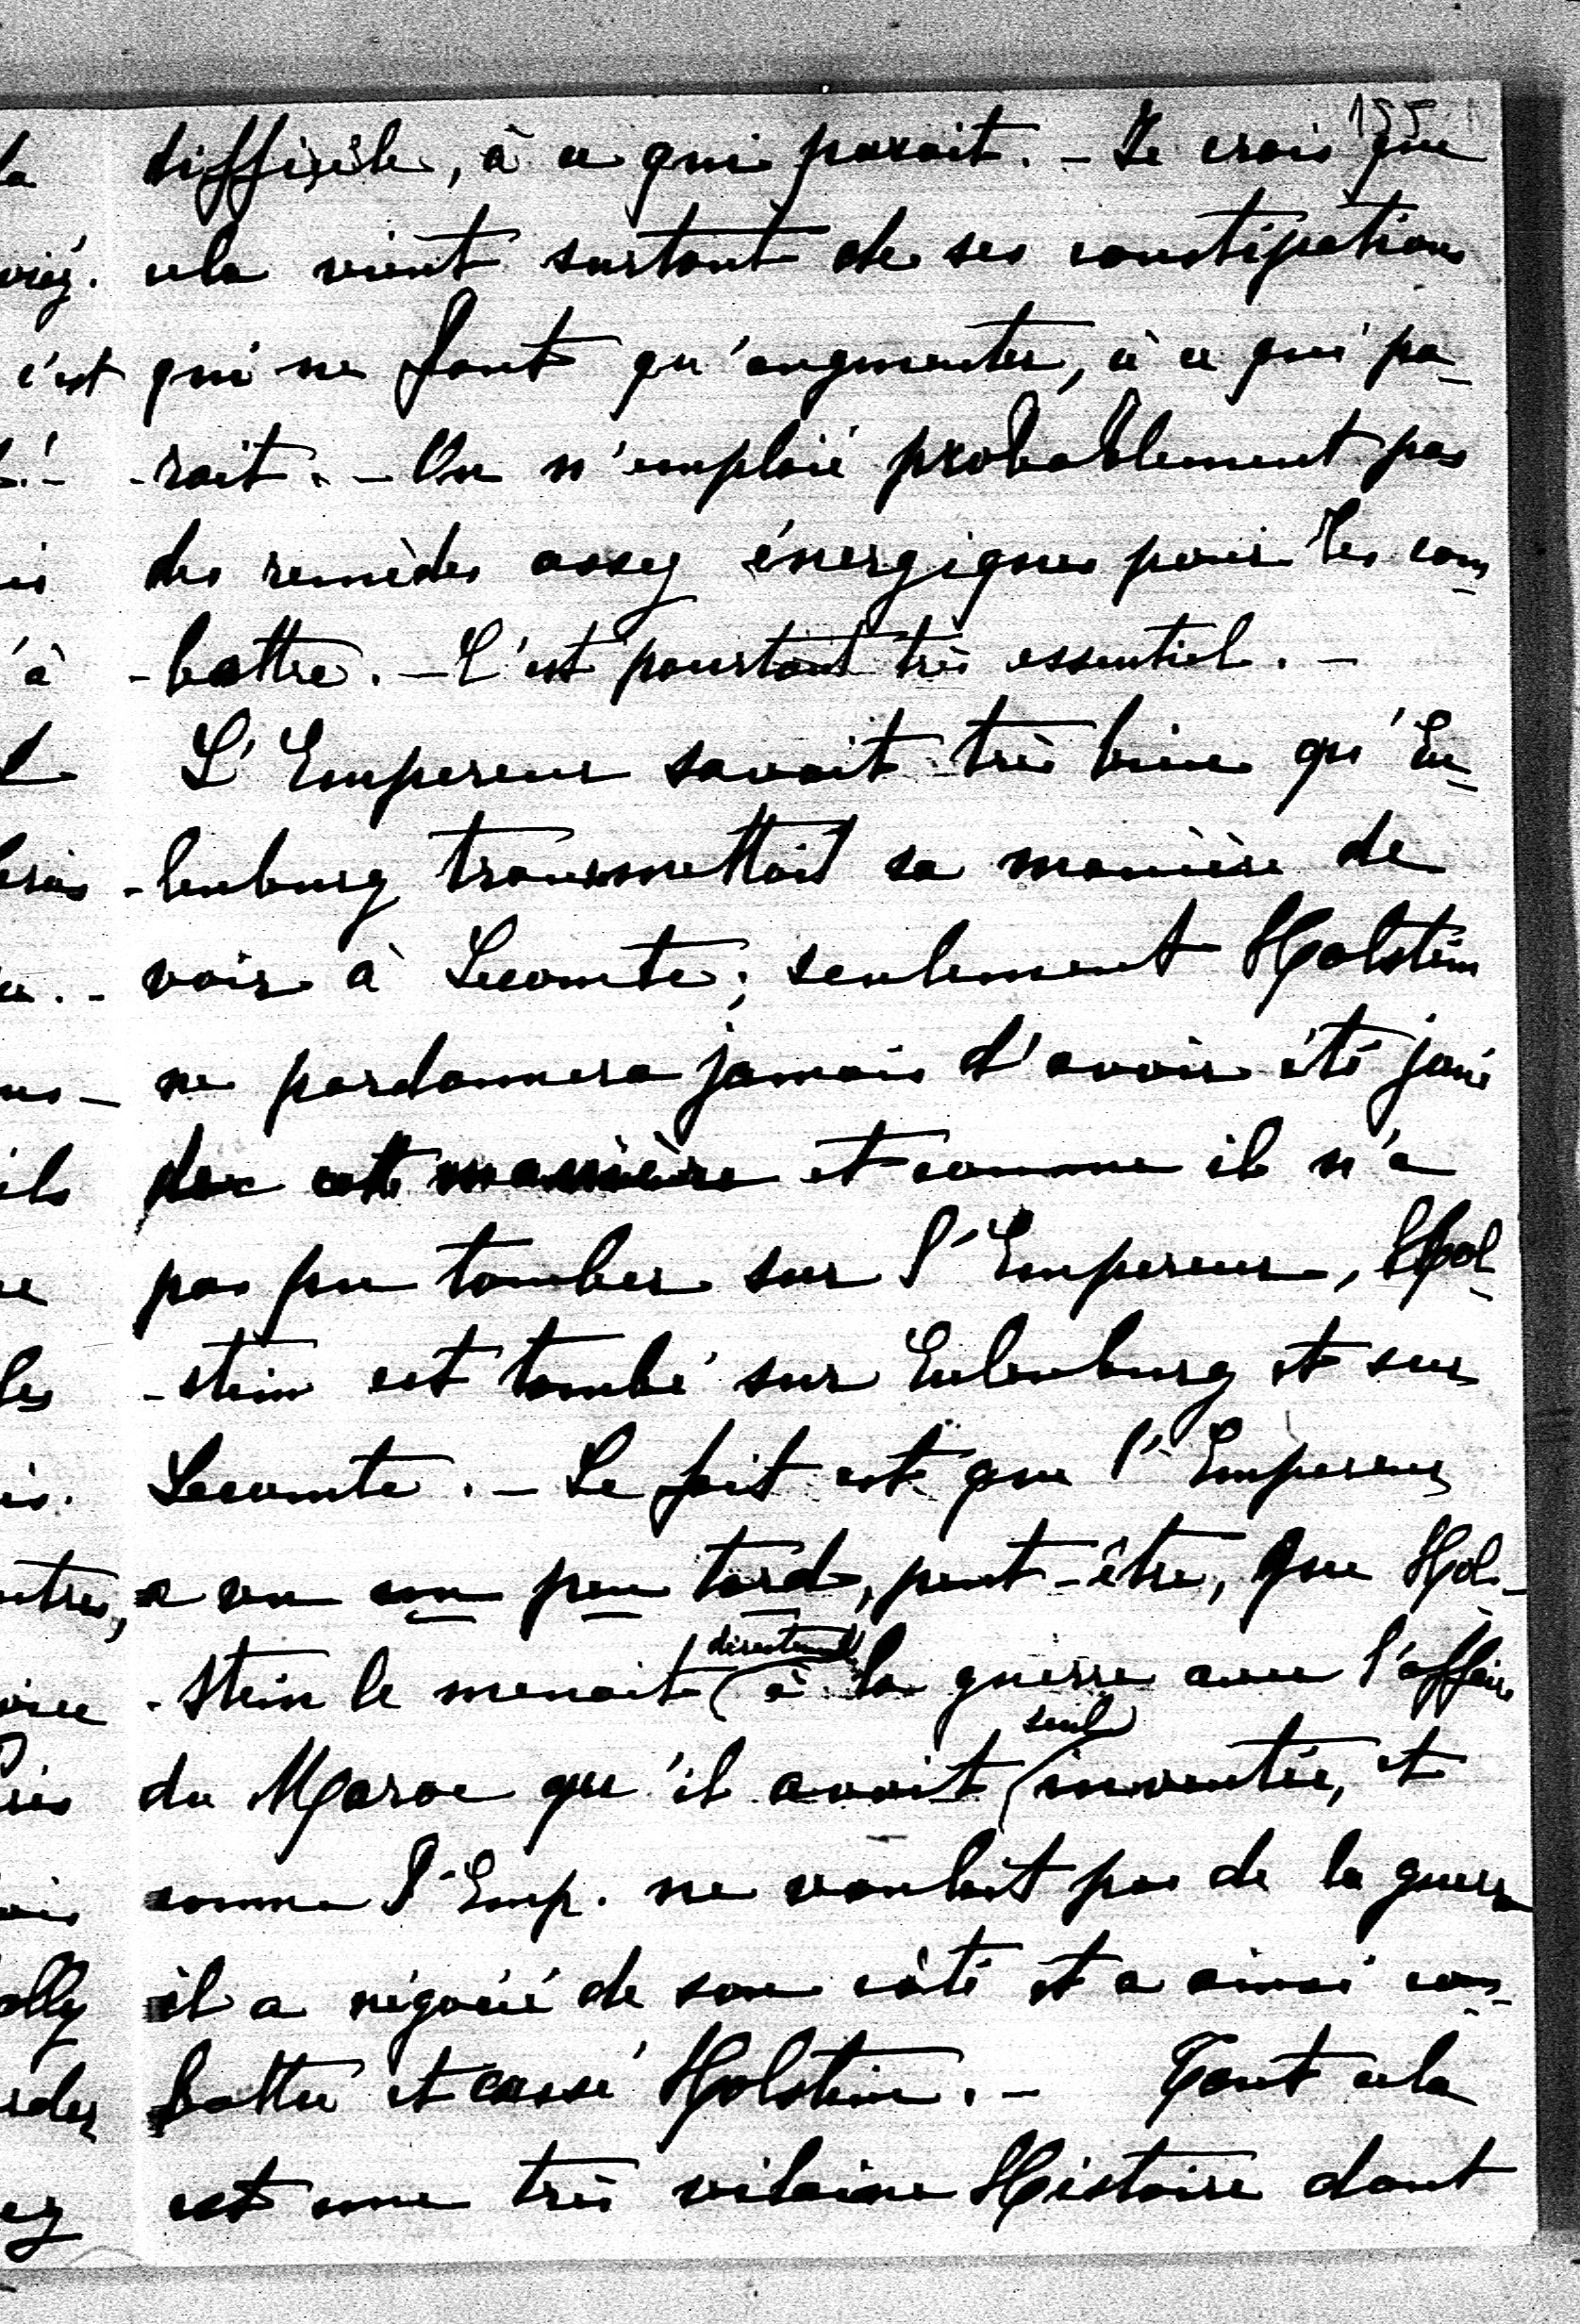 155
difficile, à ce qui parait. - Je crois que
cela vient surtout de ses constipations
qui ne font qu'augmenter, à ce qui pa-
-rait. - On n'emploié probablement pas
des remèdes assez énergiques pour les com-
-battre. - C'est pourtant très essentiel. -
L'Empereur savait très bien qu'Eu-
-lenburg transmettait sa manière de
voir à Lecomte; seulement Holstein
ne pardonnera jamais d'avoir été joué
de cette manière et comme il n'a
pas pu tomber sur l'Empereur, Hol-
-stein est tombé sur Eulenburg et sur
Lecomte. - Le fait est que l'Empereur
a vu un peu tard, peut-être, que Hol-
-stein le menait directement à la guerre avec l'affaire
du Maroc qu'il avait seul inventée, et
comme l'Emp. ne voulait pas de la guerre
il a négocié de son côté et a ainsi com-
battu et cassé Holstein. - Tout cela
est une très vilaine Histoire dont